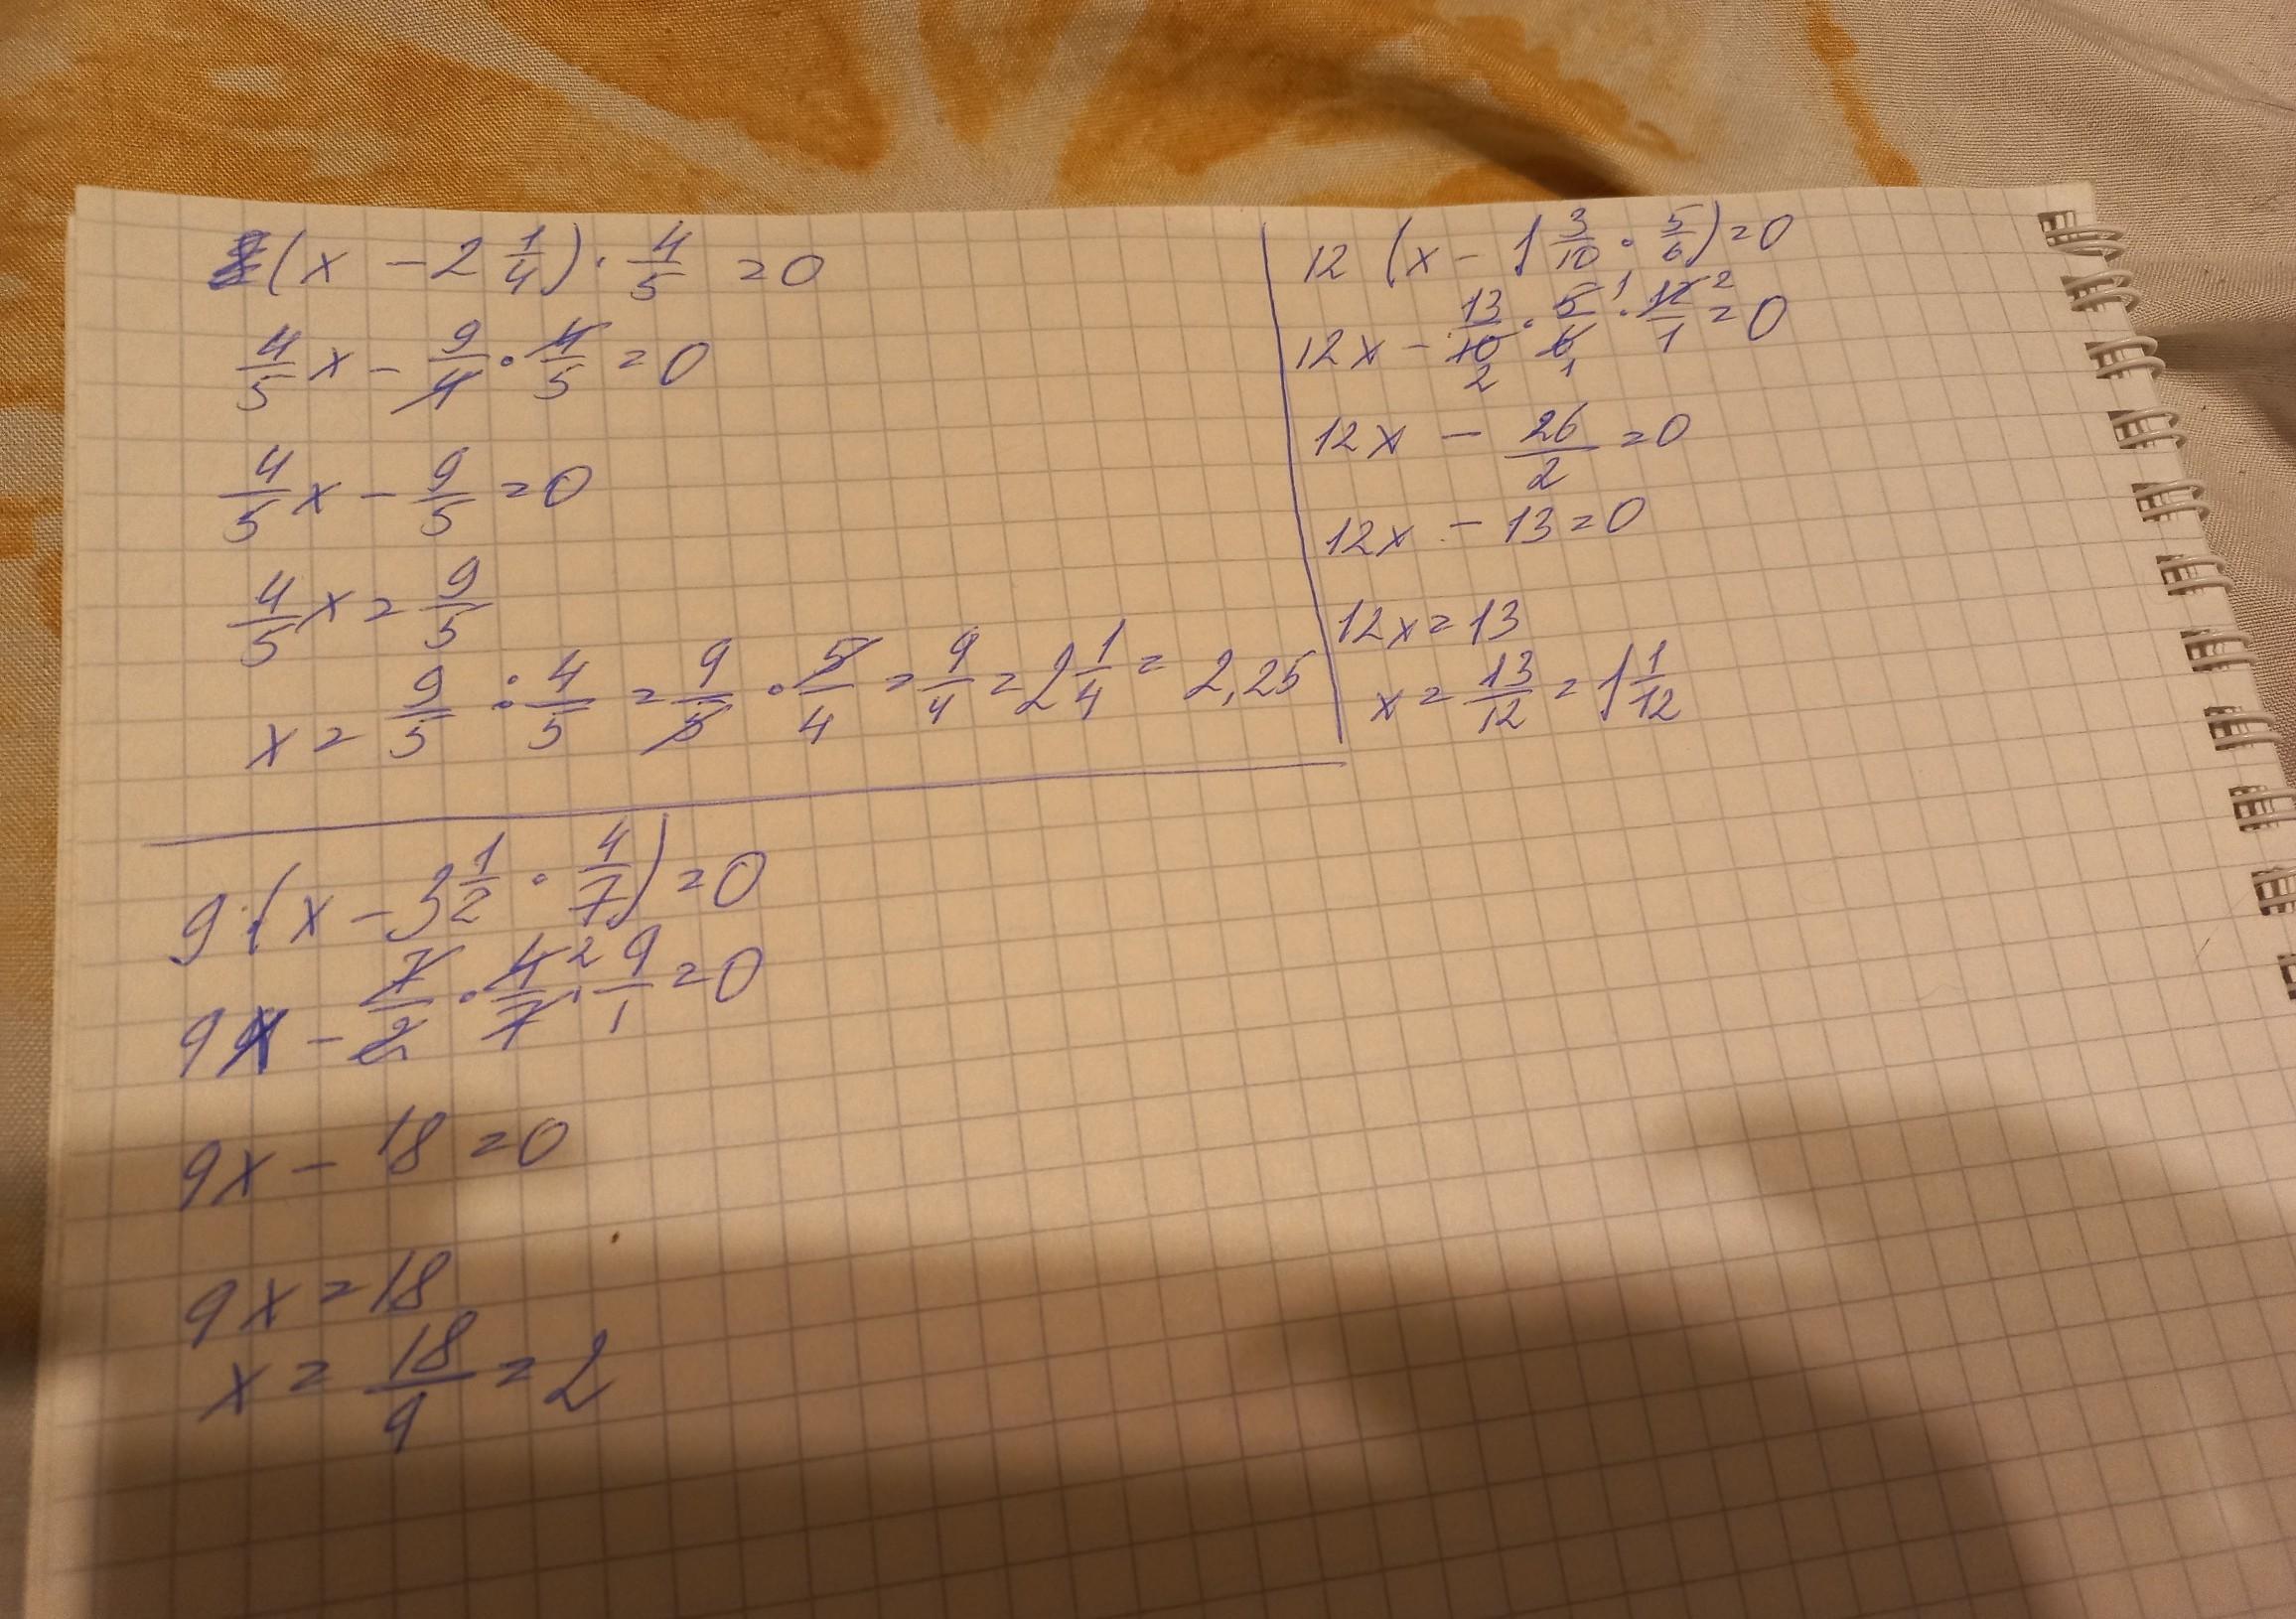 (x - 2 1/4) · 4/5 = 0
4/5 x - 9/4 · 4/5 = 0
4/5 x - 9/5 = 0
4/5 x = 9/5
x = 9/5 : 4/5 = 9/5 · 5/4 = 9/4 = 2 1/4 = 2,25
12 (x - 1 3/10 · 5/6) = 0
12x - 13/10 2 · 5/6 1 1 · 12/1 2 = 0
12x - 26/2 = 0
12x - 13 = 0
12x = 13
x = 13/12 = 1 1/12
9 · (x - 3 1/2 · 4/7) = 0
9x - 7/2 · 4/7 2 · 9/1 = 0
9x - 18 = 0
9x = 18
x = 18/9 = 2